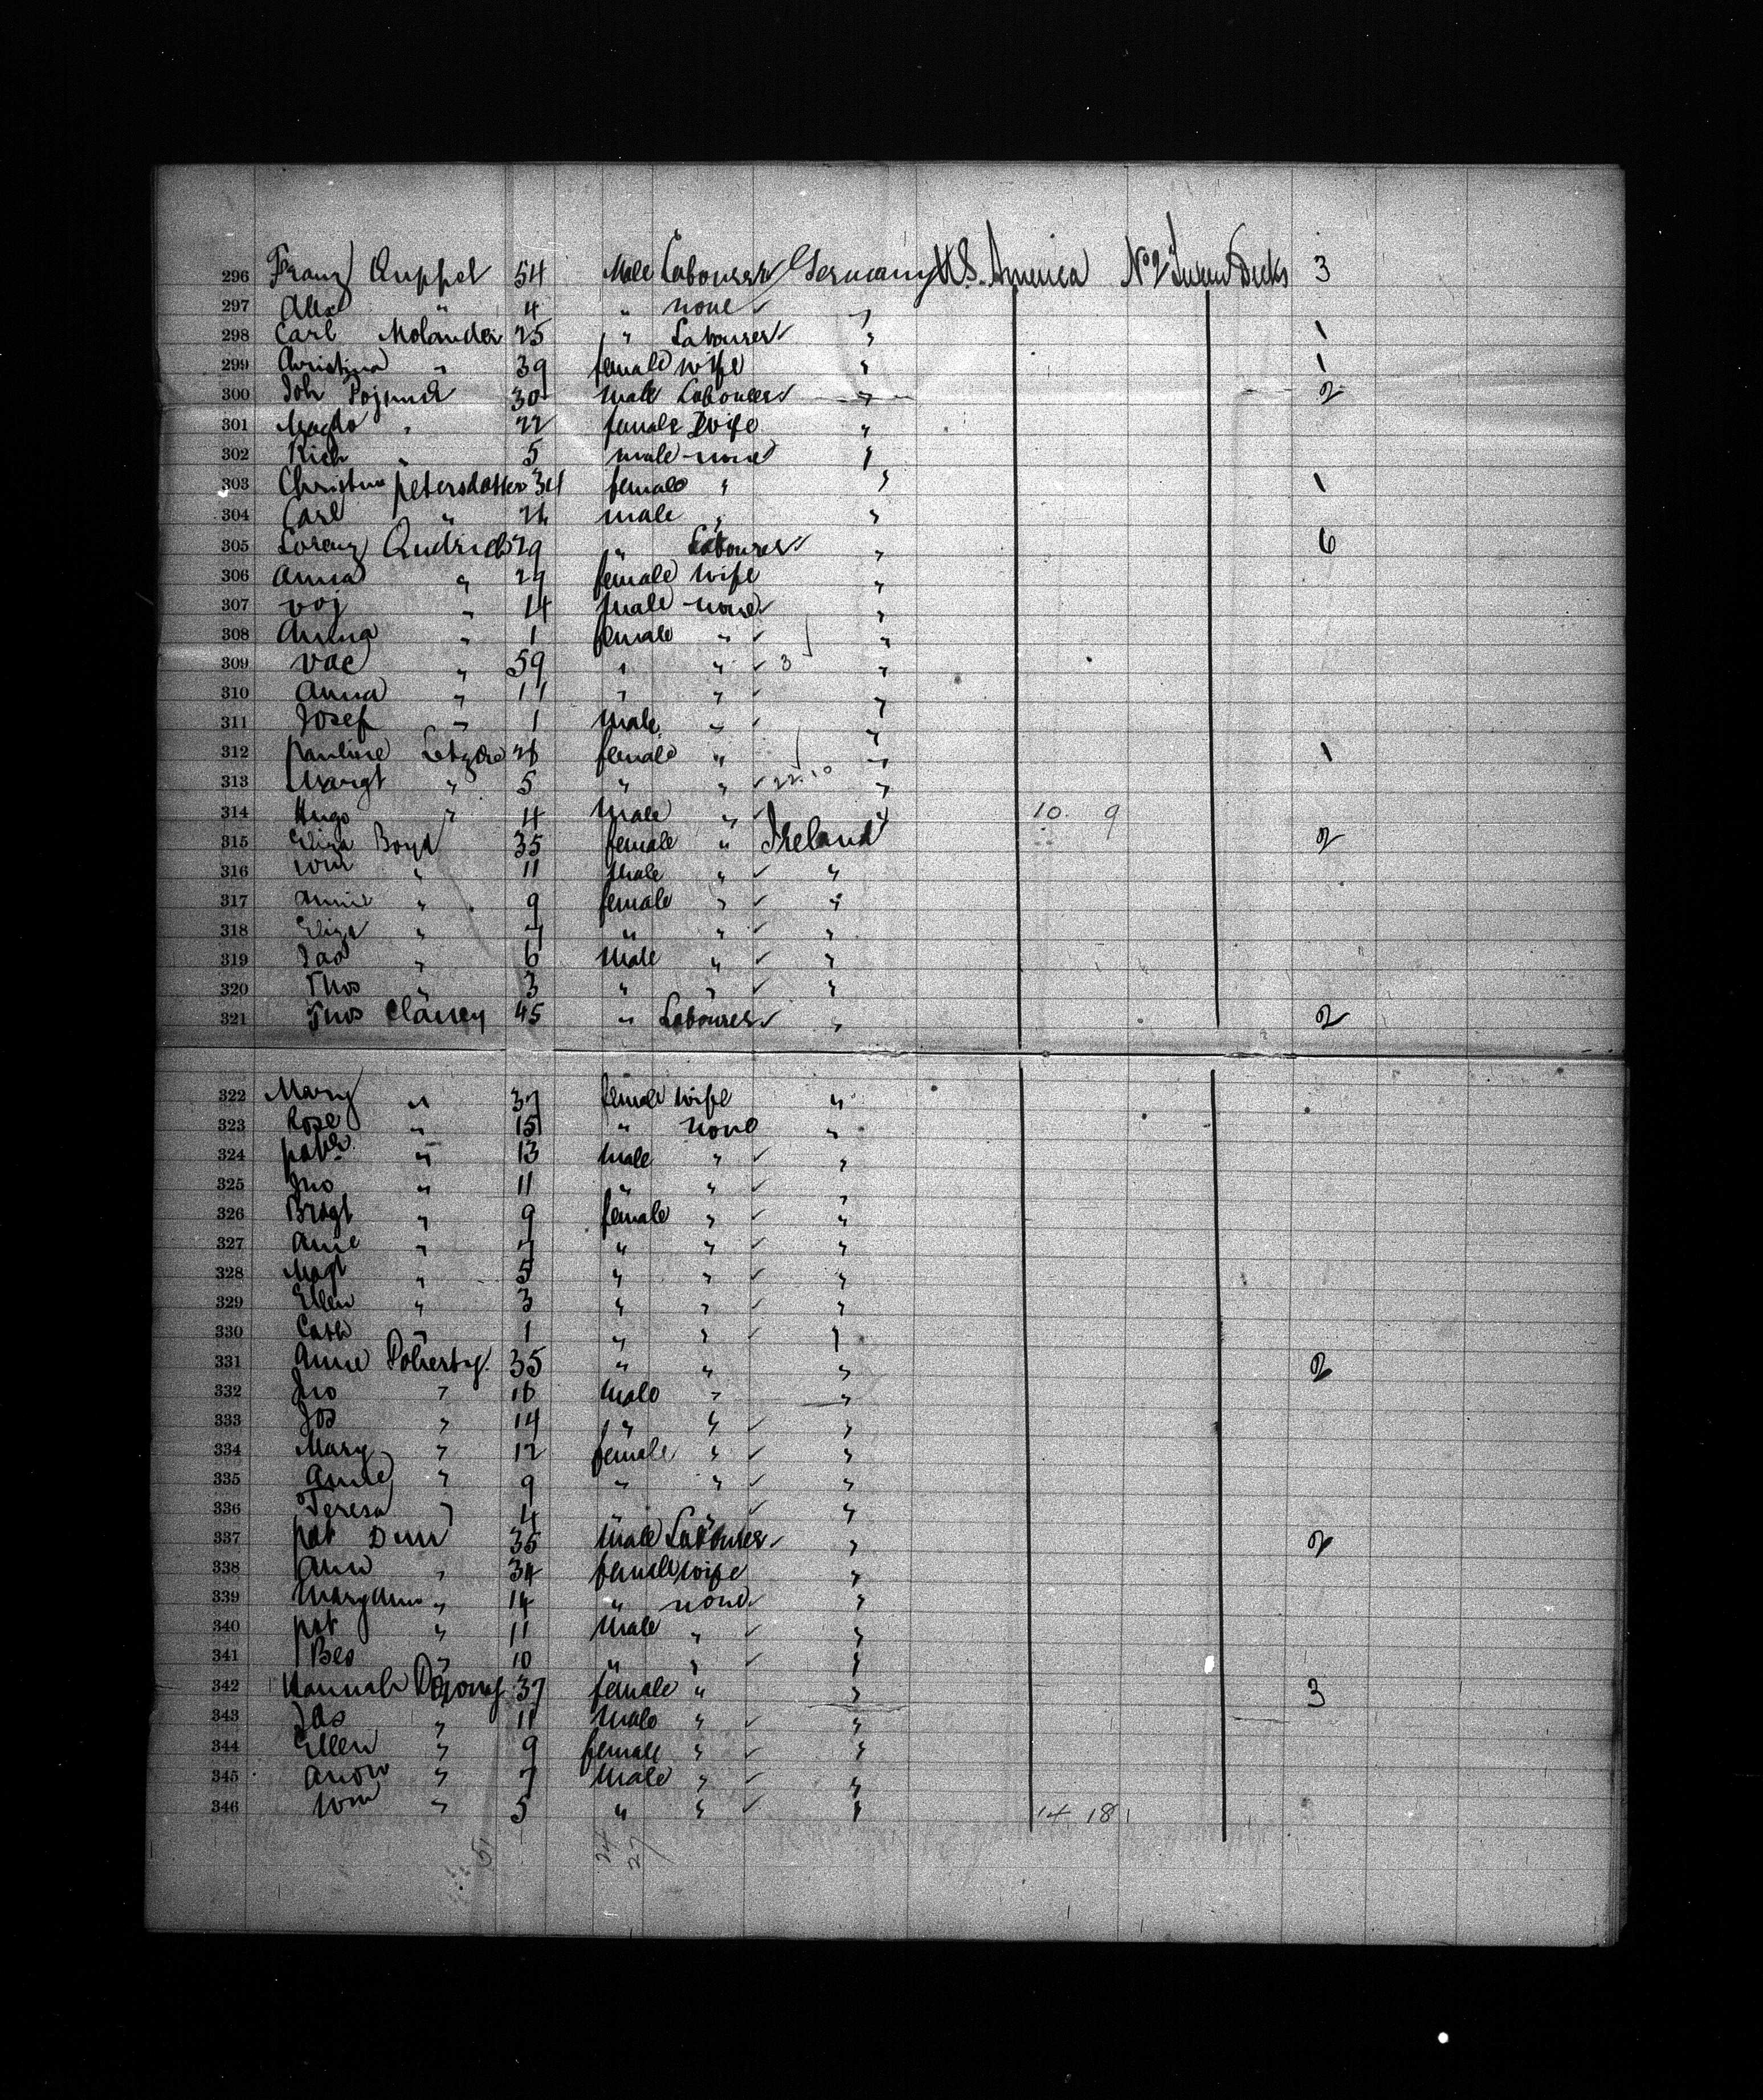 296 Franz Auppel 54 Male Labourer Germany U.S. America No 2 Tween Decks 3
297 Alex " 4 " none "
298 Carl Molander 25 " Labourer " 1
299 Christina " 39 female wife " 1
300 Joh Pojmna 30 male Labourer " 2
301 Magda " 22 female Wife "
302 Rich " 5 male none "
303 Christina petersdotter 34 female " " 1
304 Carl " male " "
305 Lorenz Andrich 29 " Labourer " 6
306 Anna " 29 female wife "
307 voj " 14 male none "
308 Anna " 1 female " "
309 vac " 59 " " 3 "
310 Anna " 11 " " "
311 Josef " 1 male " "
312 pauline female " " 1
313 Margt " 5 " " "
314 Hugo " 4 male " " 10. 9
315 Eliza Boyd 35 female " Ireland 2
316 Wm " 11 male " "
317 Annie " 9 female " "
318 Eliza " 7 " " "
319 Jas " 6 male " "
320 Thos " 3 " " "
321 Thos Clancy 45 " Labourer " 2
322 Mary " 37 female wife "
323 Rose " 15 " none "
324 patk " 13 male " "
325 Jno " 11 " " "
326 Bridgt " 9 female " "
327 Anne " 7 " " "
328 Magt " 5 " " "
329 Ellen " 3 " " "
330 Cath " 1 " " "
331 Anne Doherty 35 " " " 2
332 Jno " 16 male " "
333 Jos " 14 " " "
334 Mary " 12 female " "
335 Anne " 9 " " "
336 Teresa " 4 " " "
337 pat Dunn 35 male Labourer " 2
338 Ann " 34 female wife "
339 Mary Ann " 14 " none "
340 pat " 11 male " "
341 " 10 " " "
342 Hannah 37 female " " 3
343 Jas " 11 male " "
344 Ellen " 9 female " "
345 " 7 male " "
346 Wm " 5 " " " 14 18
51 24 27